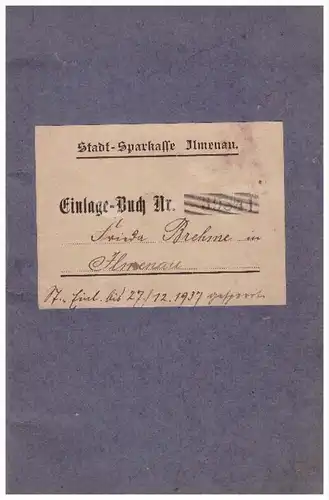 Stadt-Sparkasse Ilmenau.
Einlage-Buch Nr.
Frieda Brehme in
Ilmenau
St. Einl. bis 27/12.1937 gesperrt